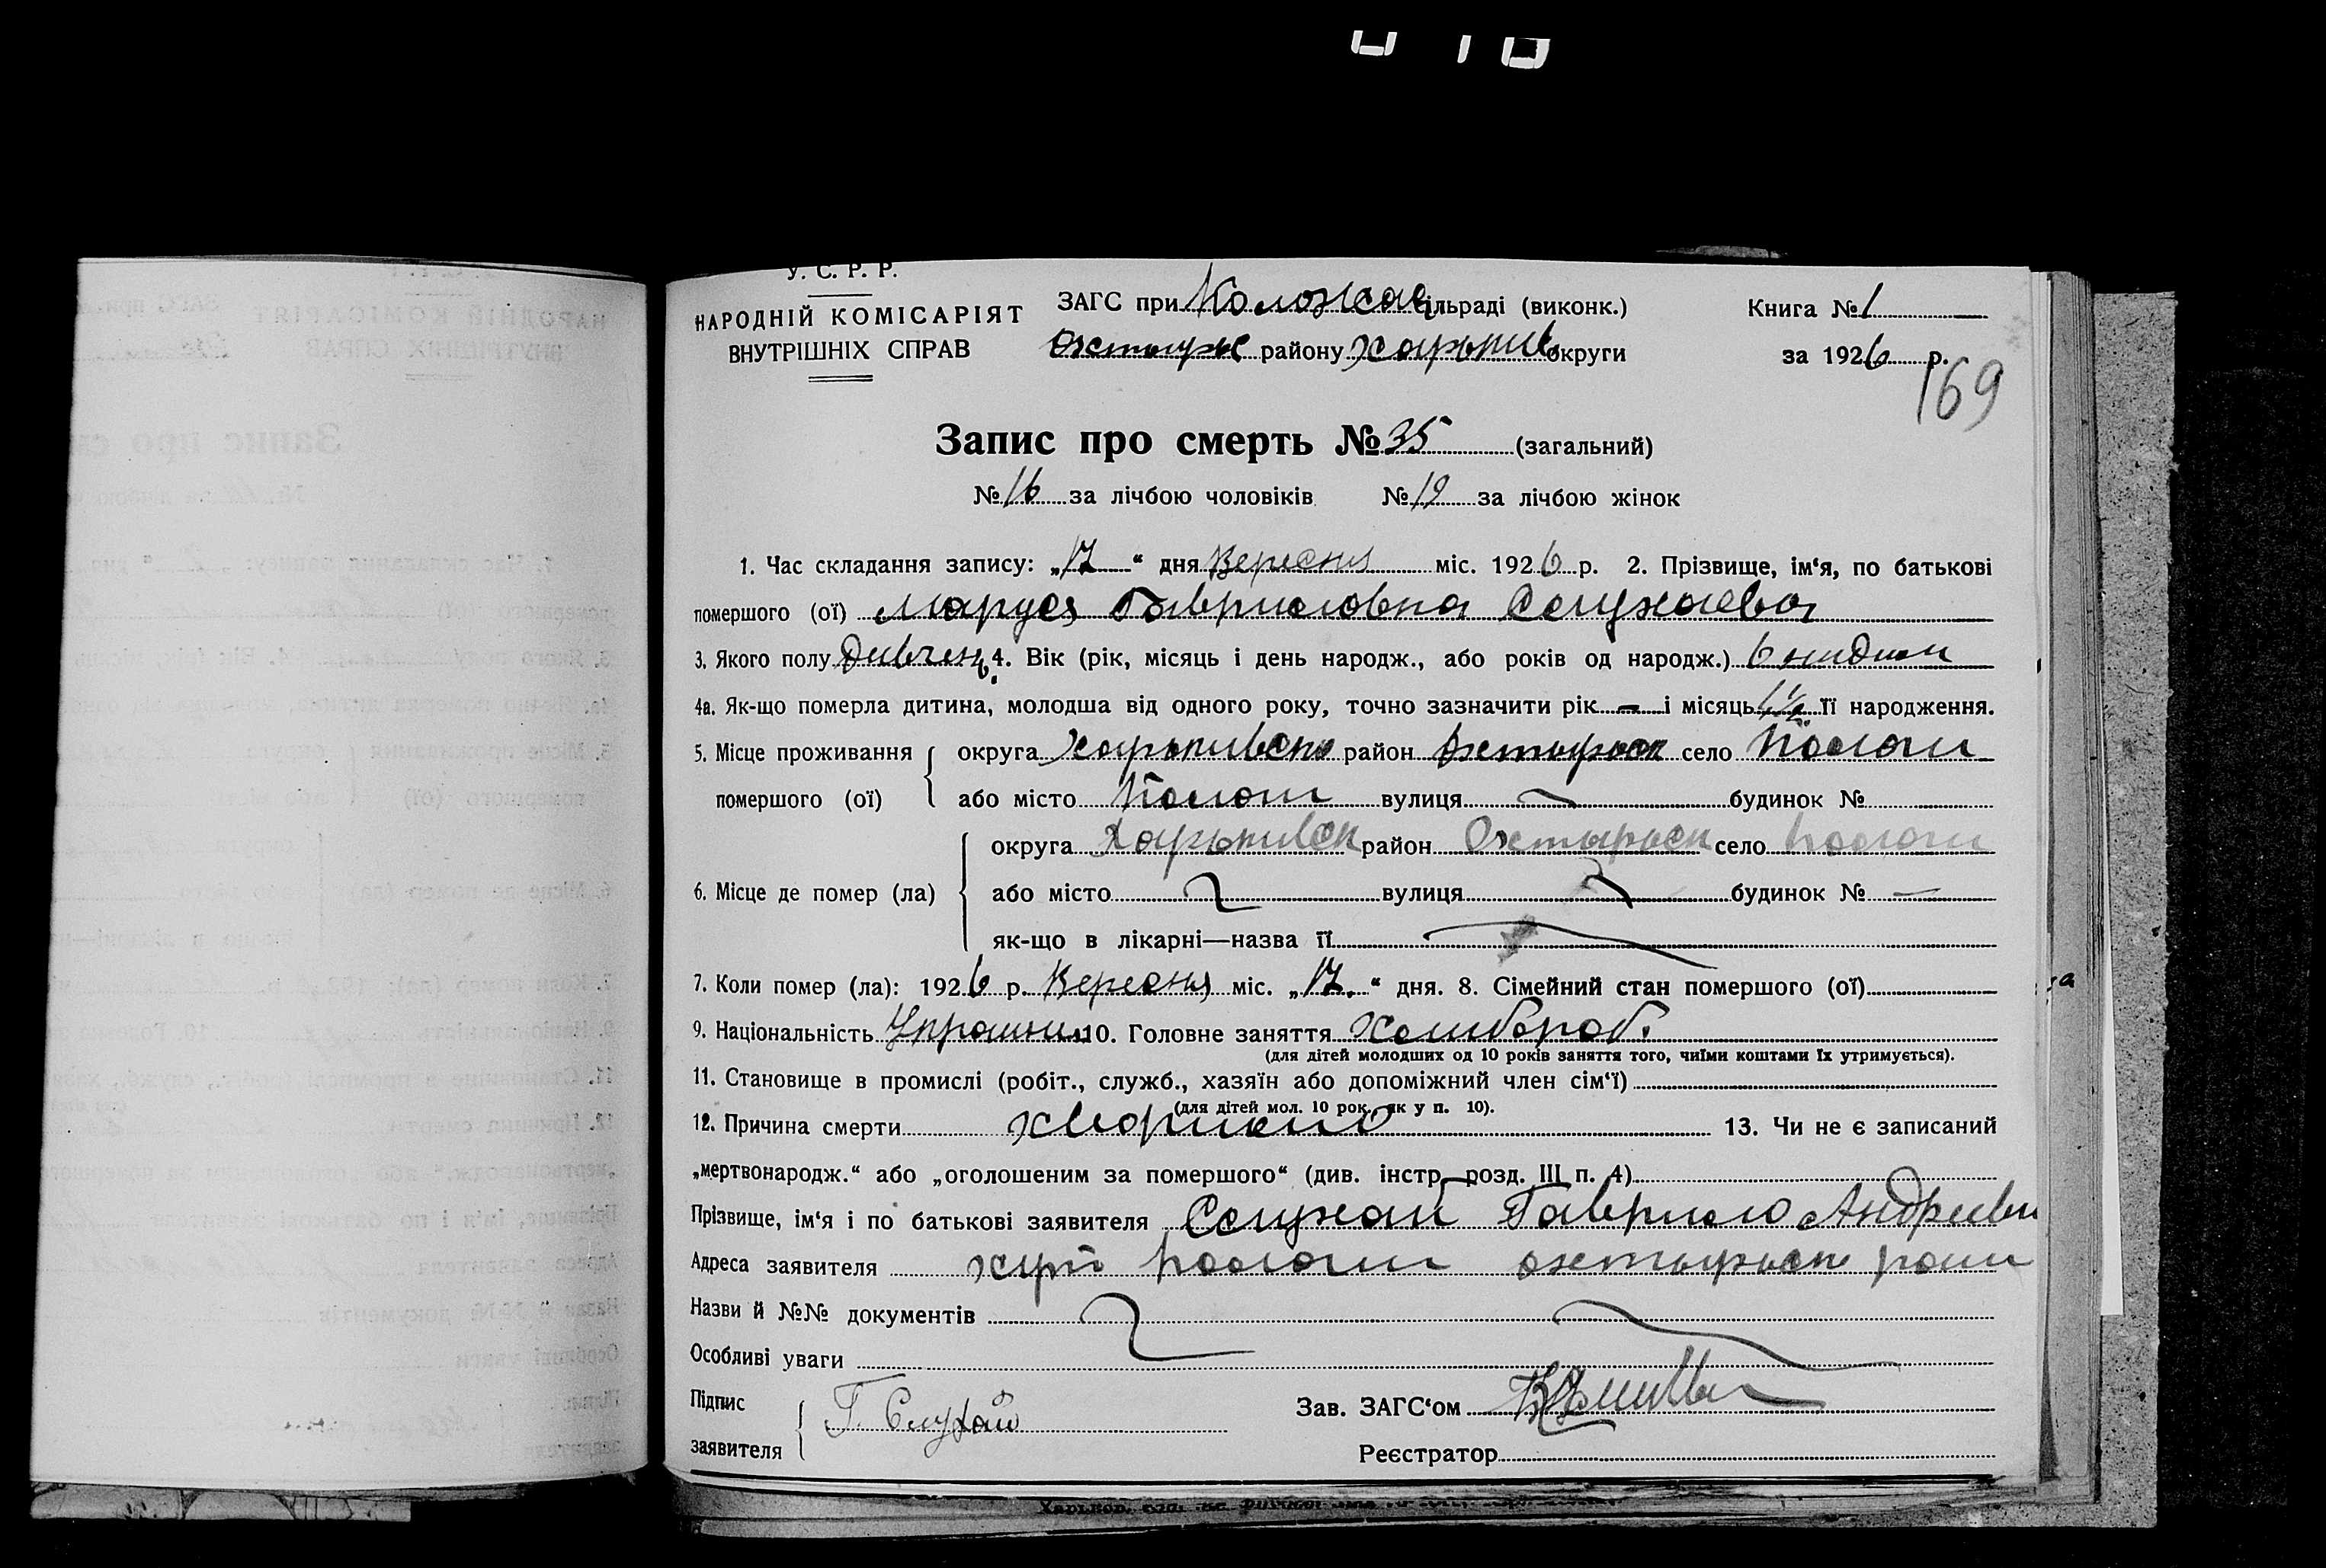 У. С. Р. Р.
НАРОДНІЙ КОМІСАРІЯТ
ВНУТРІШНІХ СПРАВ
ЗАГС при сільраді (виконк.)
району округи
Книга № 1
за 1926 р.
169
Запис про смерть № 35 (загальний)
№ 16 за лічбою чоловіків № 19 за лічбою жінок
1. Час складання запису: „17“ дня Вересня міс. 1926 р. 2. Прізвище, ім‘я, по батькові
помершого (ої) Маруся Гавриловна Слухаева
3. Якого полу 4. Вік (рік, місяць і день народж., або років од народж.) 6
4а. Як-що померла дитина, молодша від одного року, точно зазначити рік — і місяць 1½ її народження.
5. Місце проживання округа район село Пологи
помершого (ої) або місто Пологи вулиця будинок №
округа Харьківск район Охтырськ село Пологи
6. Місце де помер (ла) або місто вулиця будинок № —
як-що в лікарні—назва її
7. Коли помер (ла): 1926 р. Вересня міс. „17.“ дня. 8. Сімейний стан помершого (ої)
9. Національність 10. Головне заняття Хлибороб.
(для дітей молодших од 10 років заняття того, чиїми коштами їх утримується).
11. Становище в промислі (робіт., служб., хазяїн або допоміжний член сім‘ї)
(для дітей мол. 10 рок. як у п. 10).
12. Причина смерти 13. Чи не є записаний
„мертвонародж.“ або „оголошеним за помершого“ (див. інстр. розд. III п. 4)
Прізвище, ім‘я і по батькові заявителя Слухай Гаврило Андриеви
Адреса заявителя хут Пологи охтырськ
Назви й №№ документів
Особливі уваги
Підпис
заявителя Г. Слухай
Зав. ЗАГС‘ом
Реєстратор